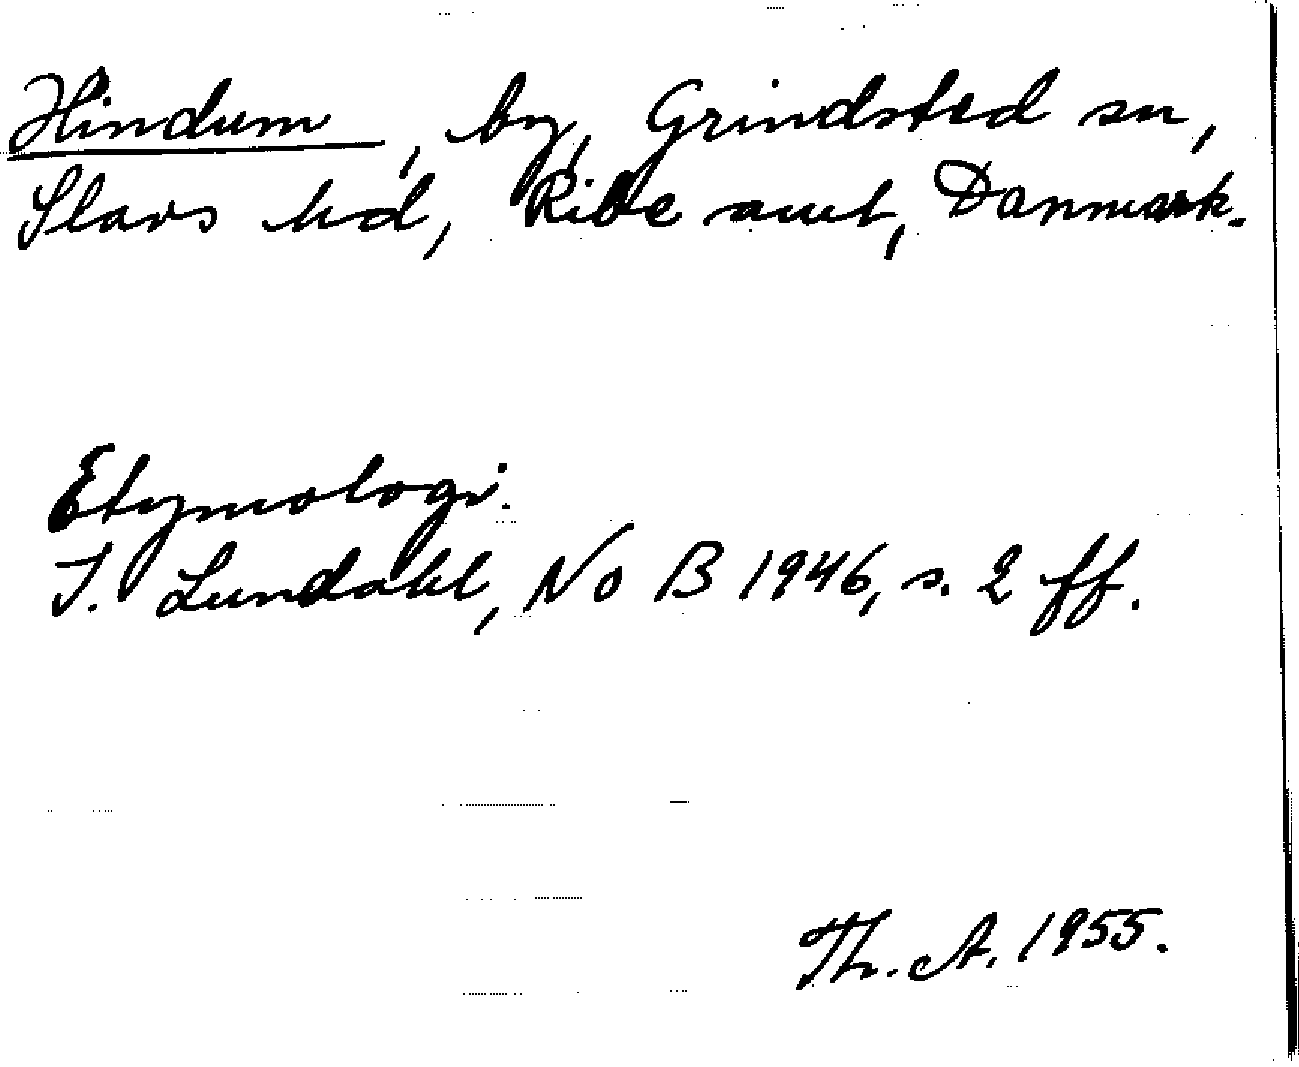 Hindum, by, Grindsted sn,
Slavs hd, Ribe amt, Danmark.
Etymologi.
I. Lundahl, No B 1946, s. 2 ff.
Th. A. 1955.